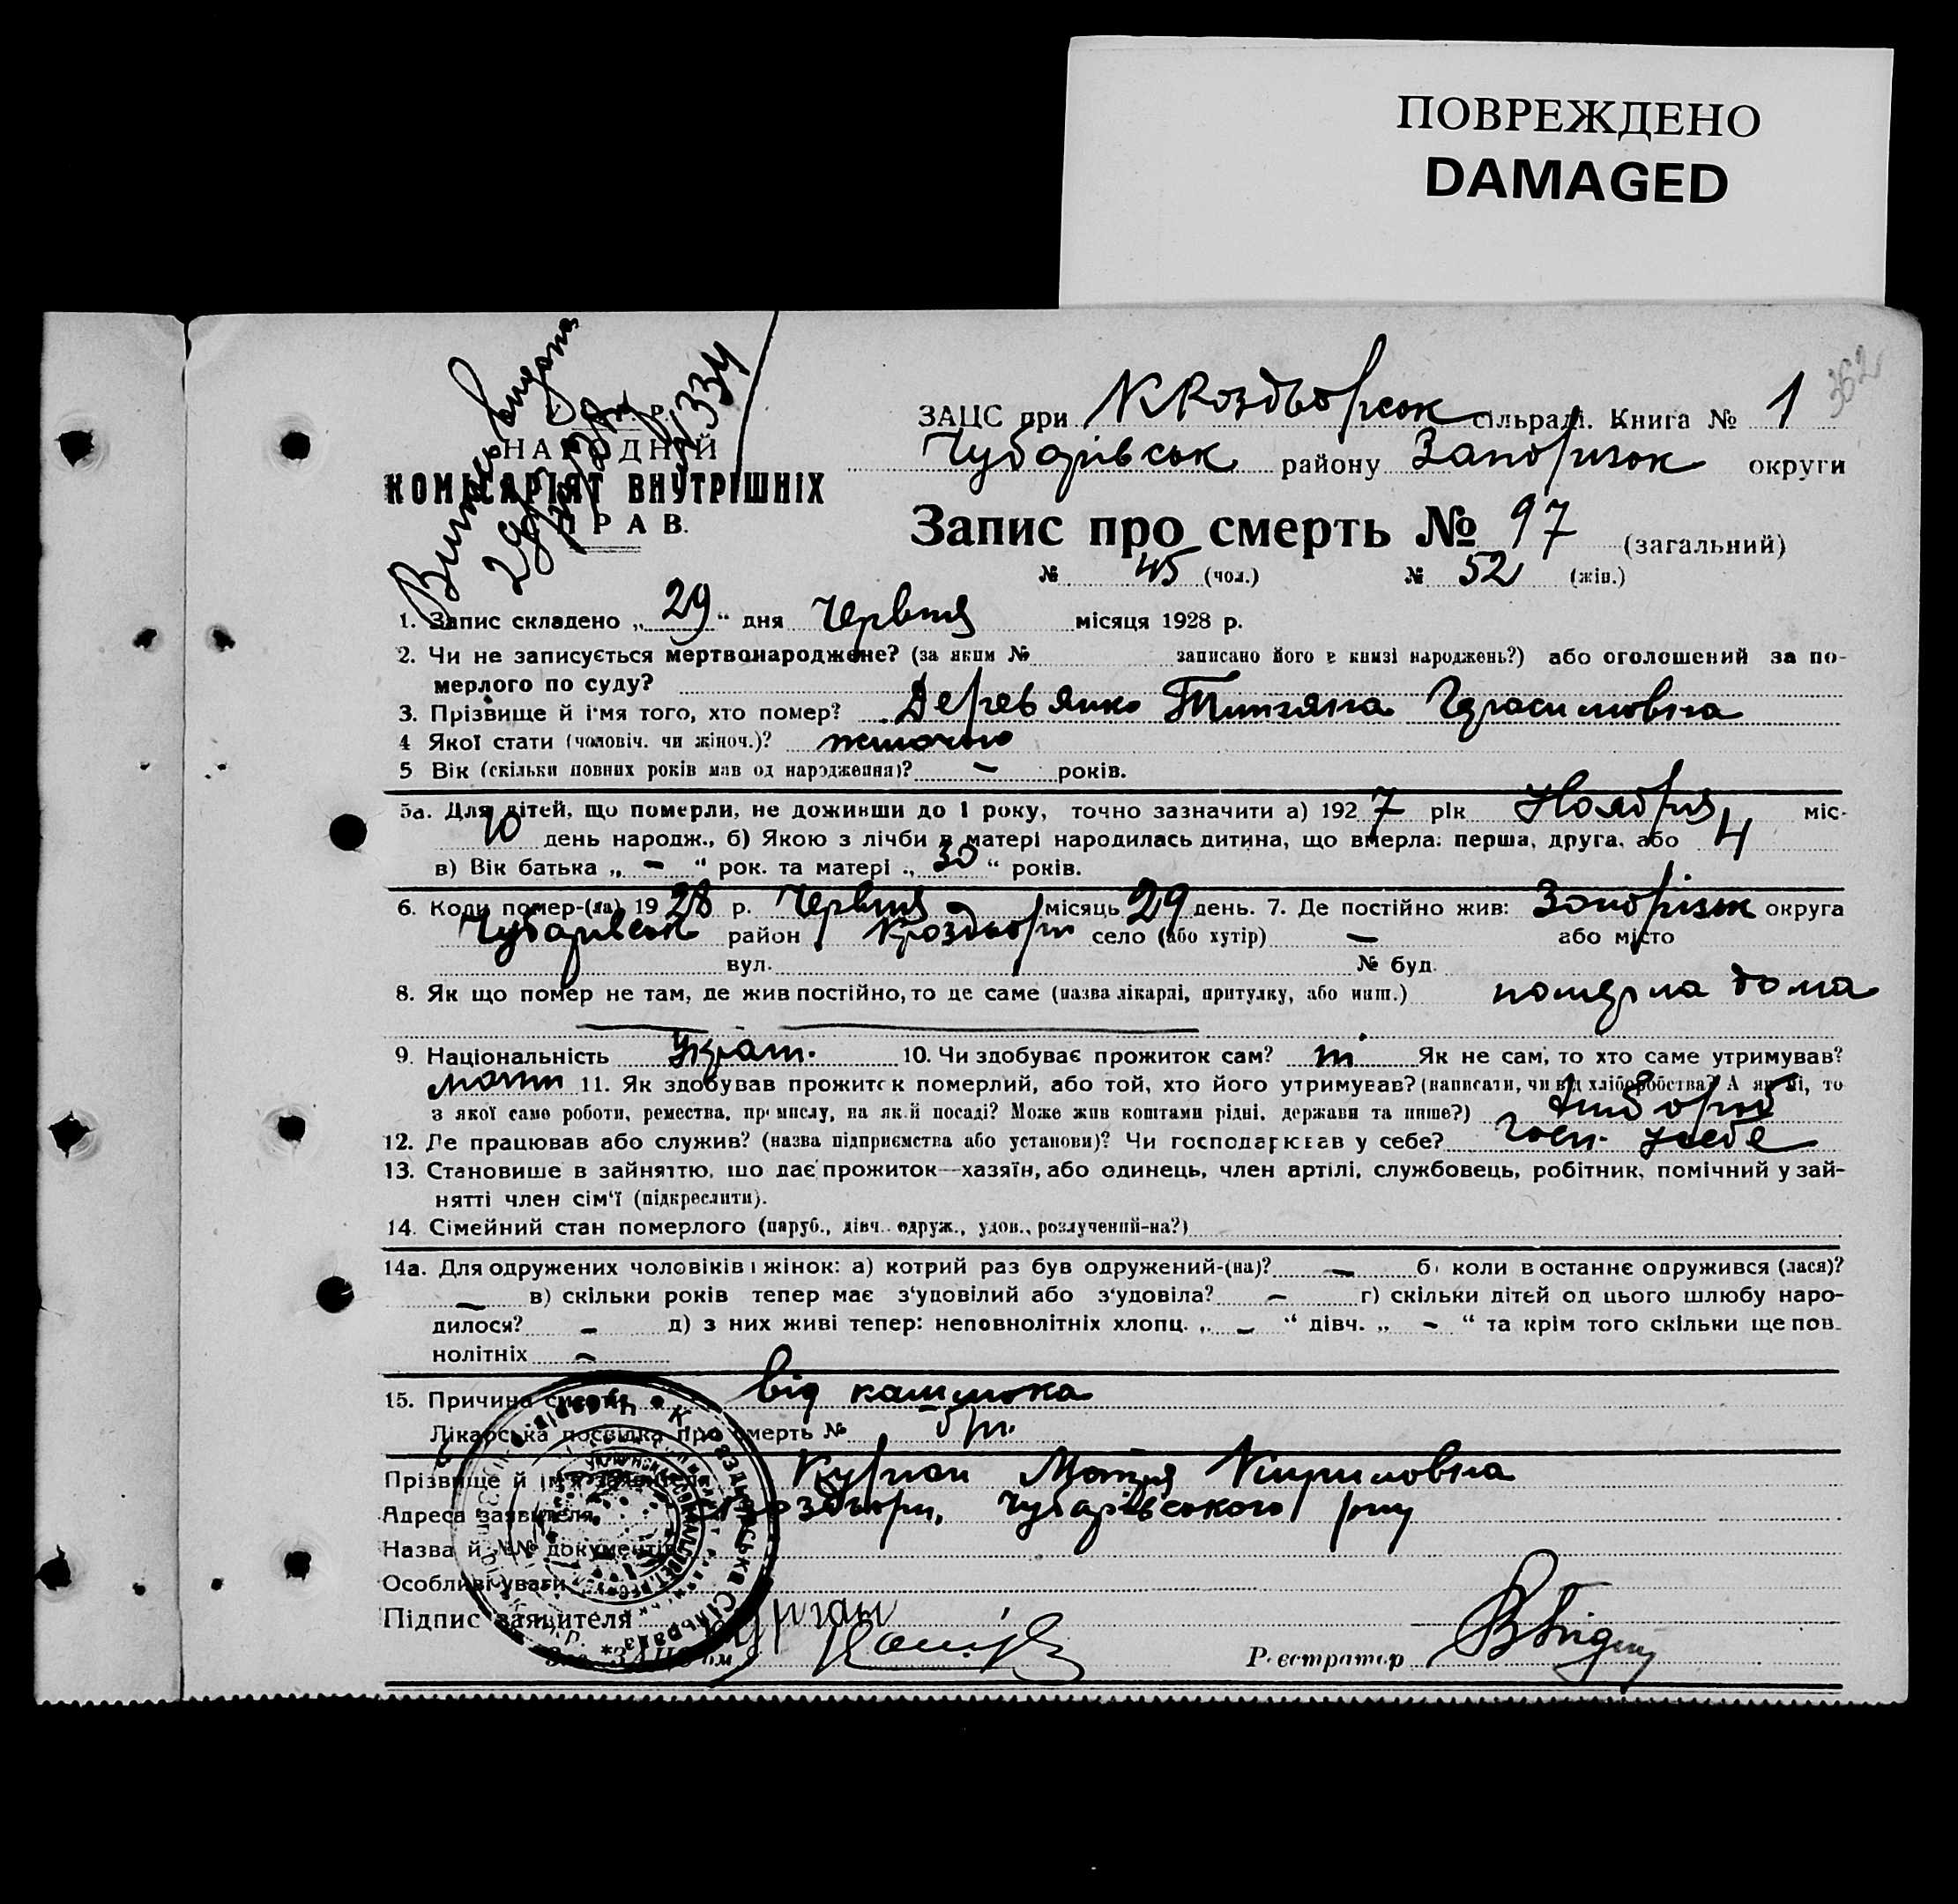 ПОВРЕЖДЕНО
DAMAGED
362
ЗАЦС при сільраді. Книга № 1
НАРОДНІЙ
Чубарівськ району Запорізьк округи
КОМІСАРІЯТ ВНУТРІШНІХ
СПРАВ.
Запис про смерть № 97 (загальний)
№ 45 (чол.) № 52 (жін.)
1. Запис складено „ 29 “ дня Червня місяця 1928 р.
2. Чи не записується мертвонароджене? (за яким № записано його в книзі народжень?) або оголошений за по-
мерлого по суду?
3. Прізвище й ім'я того, хто помер? Деревянко Титяна Герасимовна
4 Якої стати (чоловіч. чи жіноч.)? жіночою
5 Вік (скільки повних років мав од народження)? – років.
5а. Для дітей, що померли, не доживши до 1 року, точно зазначити а) 1927 рік Ноября міс.
10 день народж., б) Якою з лічби в матері народилась дитина, що вмерла: перша, друга, або 4
в) Вік батька „ – “ рок. та матері „ 30 “ років.
6. Коли помер-(ла) 1928 р. Червня місяць 29 день. 7. Де постійно жив: Запорізьк округа
Чубарівськ район село (або хутір) – або місто
вул. № буд.
8. Як що помер не там, де жив постійно, то де саме (назва лікарні, притулку, або инш.) померла дома
9. Національність Украт. 10. Чи здобуває прожиток сам? ні Як не сам, то хто саме утримував?
мати 11. Як здобував прожиток померлий, або той, хто його утримував? (написати, чи від хліборобства? А як ні, то
з якої саме роботи, ремества, промислу, на якій посаді? Може жив коштами рідні, держави та инше?) хлібороб
12. Де працював або служив? (назва підприємства або установи)? Чи господарював у себе? госп. у себе
13. Становище в зайняттю, що дає прожиток—хазяїн, або одинець, член артілі, службовець, робітник, помічний у зай-
нятті член сім'ї (підкреслити).
14. Сімейний стан померлого (паруб., дівч. одруж., удов., розлучений-на?)
14а. Для одружених чоловіків і жінок: а) котрий раз був одружений-(на)? – б) коли в останнє одружився (лася)?
– в) скільки років тепер має з'удовілий або з'удовіла? – г) скільки дітей од цього шлюбу наро-
дилося? – д) з них живі тепер: неповнолітніх хлопц. „ – “ дівч. „ – “ та крім того скільки ще пов-
нолітніх –
15. Причина смерти від кашлюка
Лікарська посвідка про смерть №
Прізвище й ім'я заявителя Курган Мотря Кириловна
Адреса заявителя Кроздвори, Чубарівського р-ну
Назва й №№ документів
Особливі уваги
Підпис заявителя Курган
Зав. ЗАЦС'ом
Реєстратор